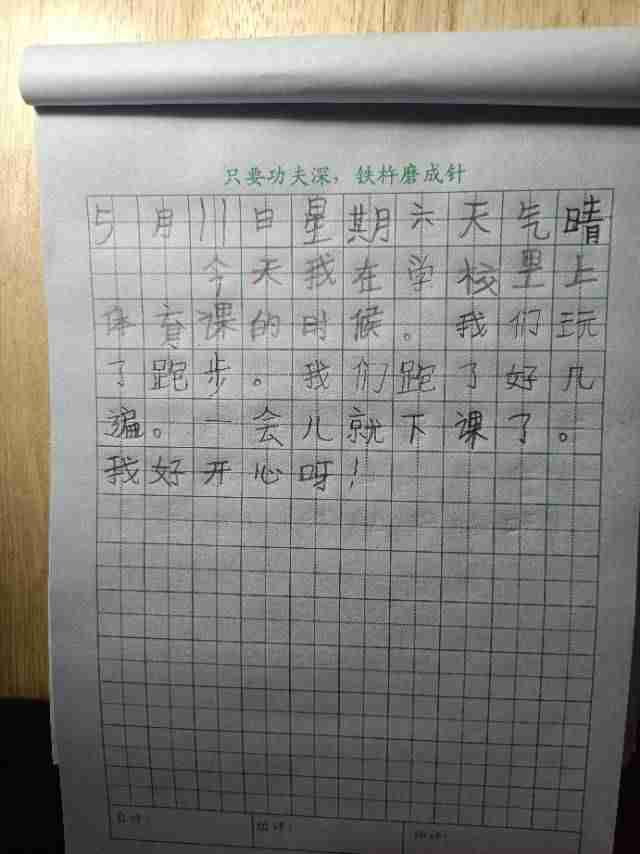 只要功夫深，铁杵磨成针
5月11日星期六天气晴
今天我在学校里上
体育课的时候。我们玩
了跑步。我们跑了好几
遍。一会儿就下课了。
我好开心呀！
自评：